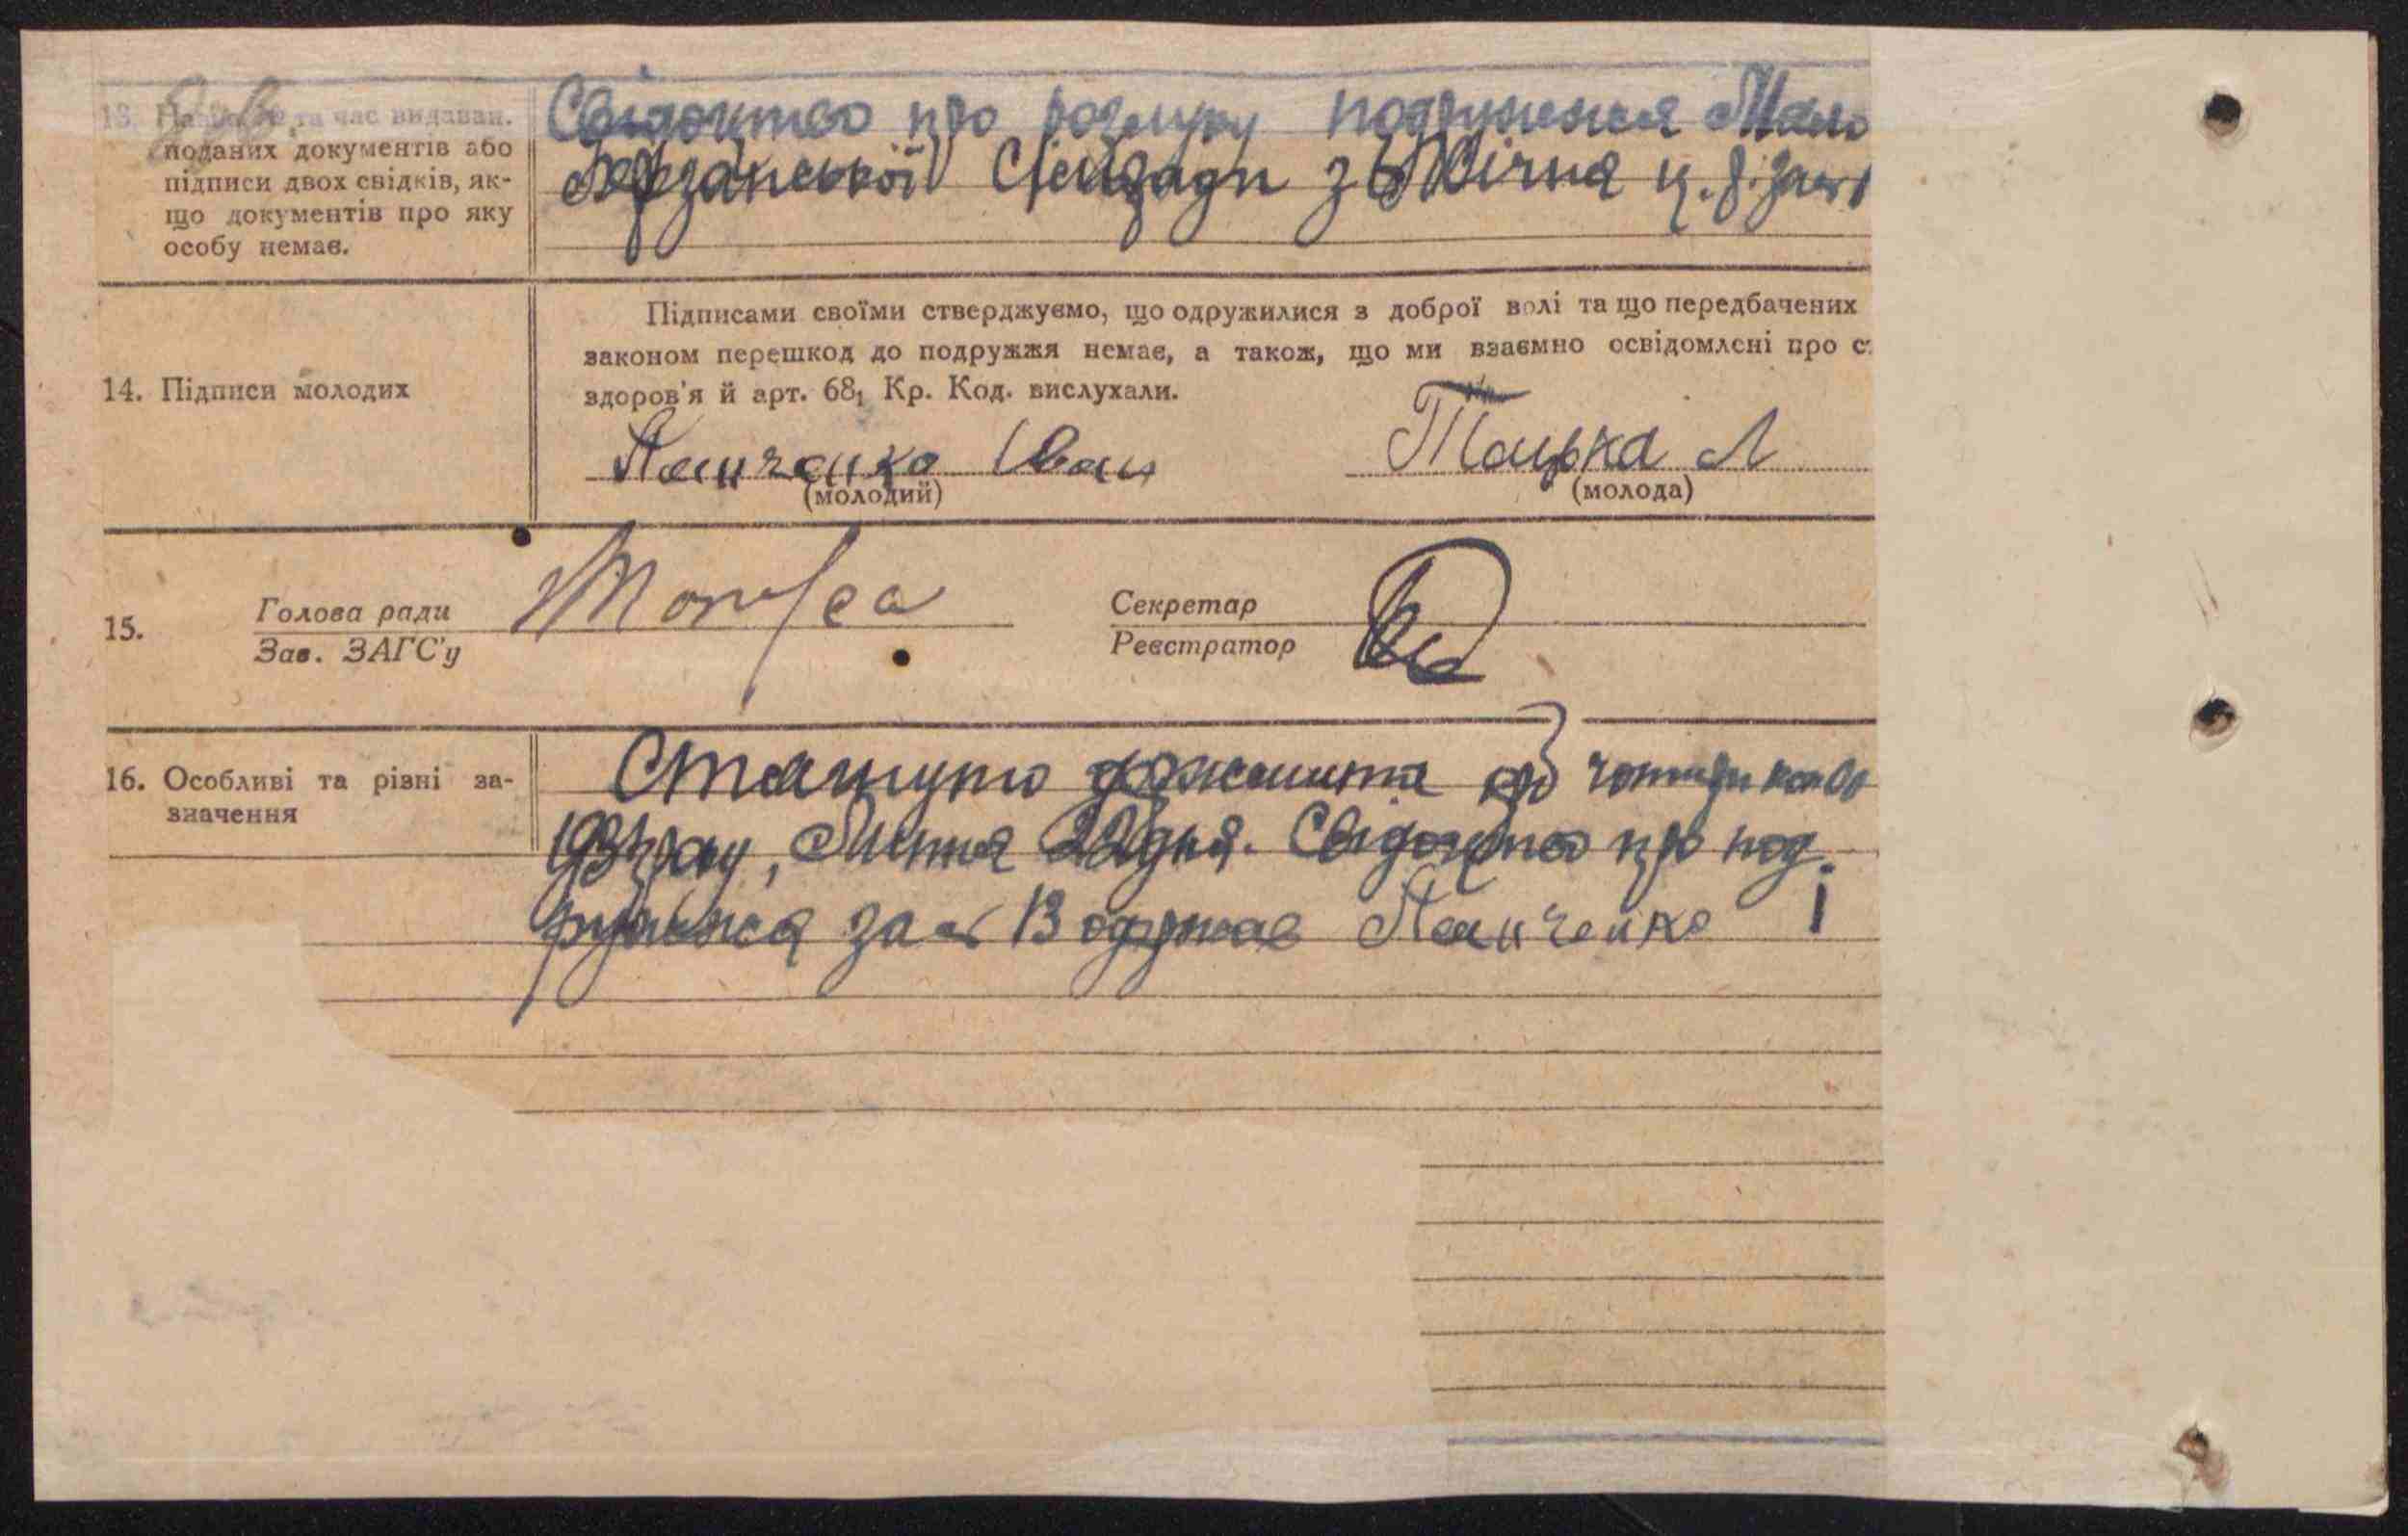 13. На та час видаван.
поданих документів або
підписи двох свідків, як-
що документів про яку
особу немає.
Свідоцтво про розлуку подружжя Мало
Березанської Сільради з Січня ц.р. за №
14. Підписи молодих
Підписами своїми стверджуємо, що одружилися з доброї волі та що передбачених
законом перешкод до подружжя немає, а також, що ми взаємно освідомлені про с
здоров'я й арт. 68₁ Кр. Код. вислухали.
Панченко Іван
Тацька Л
(молодий)
(молода)
15.
Голова ради
Зав. ЗАГС'у
Секретар
Реєстратор
16. Особливі та різні за-
значення
Стягнуто
193 року, Липня 22 дня. Свідоцтво про под
ружжя за № 13 одержав Панченко І